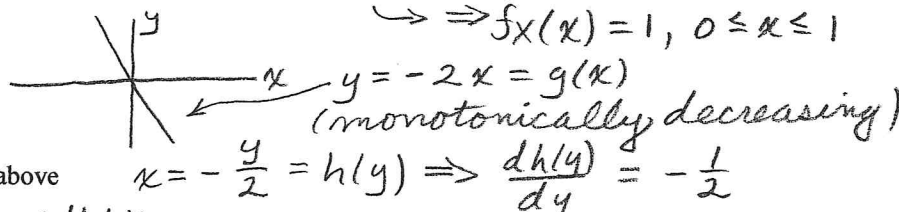 y
↪ ⇒ fx(x) = 1, 0 ≤ x ≤ 1
x
y = -2x = g(x)
(monotonically decreasing)
above x = - y/2 = h(y) ⇒ dh(y)/dy = - 1/2